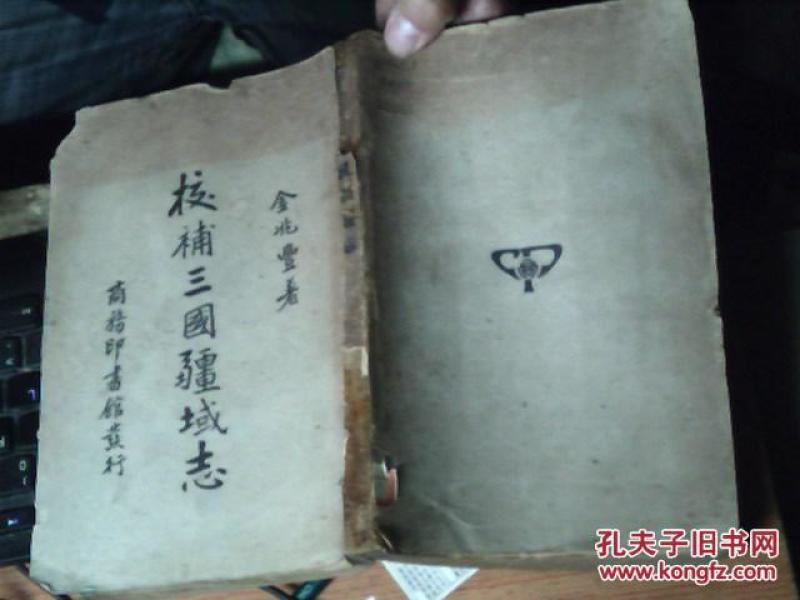 金兆豐著
校補三國疆域志
商務印書館發行
孔夫子旧书网
www.kongfz.com